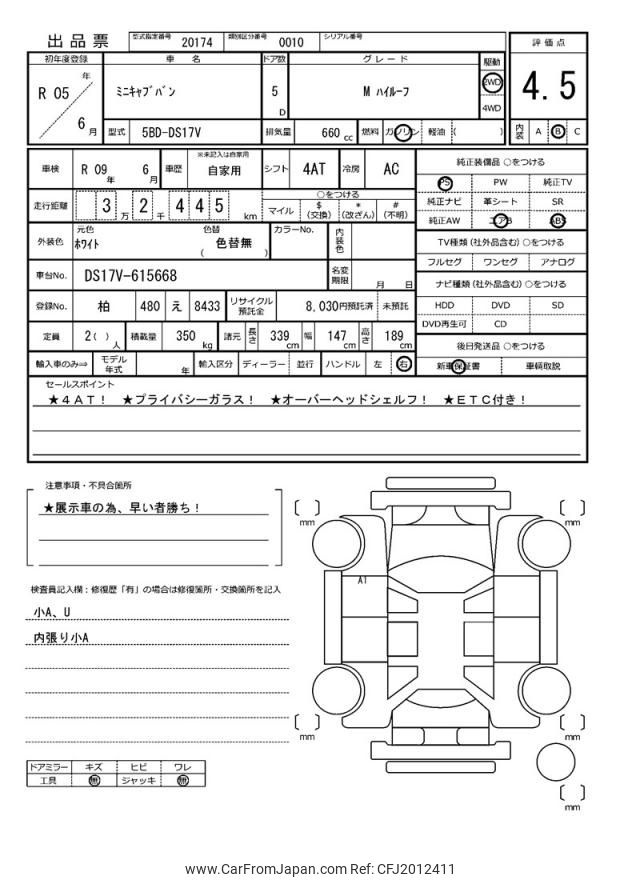 出品票 型式指定番号 20174 類別区分番号 0010 シリアル番号
評価点
4.5
内装 A B C
初年度登録 車名 ドア数 グレード 駆動
R 05 年 6 月 ミニキャブバン 5 D M ハイルーフ 2WD 4WD
型式 5BD-DS17V 排気量 660 cc 燃料 ガソリン 軽油 ( )
車検 R 09 年 6 月 車歴 ※未記入は自家用 自家用 シフト 4AT 冷房 AC
走行距離 3 万 2 千 4 4 5 km
○をつける
マイル $ (交換) * (改ざん) # (不明)
外装色 元色 ホワイト 色替 ( 色替無 ) カラーNo. 内装色
車台No. DS17V-615668 名変期限 月 日
登録No. 柏 480 え 8433 リサイクル預託金 8,030円預託済 未預託
定員 2( )人 積載量 350 kg 諸元 長さ 339 cm 幅 147 cm 高さ 189 cm
輸入車のみ⇒ モデル年式 年 輸入区分 ディーラー 並行 ハンドル 左 右
純正装備品 ○をつける
PS PW 純正TV
純正ナビ 革シート SR
純正AW エアB ABS
TV種類 (社外品含む) ○をつける
フルセグ ワンセグ アナログ
ナビ種類 (社外品含む) ○をつける
HDD DVD SD
DVD再生可 CD
後日発送品 ○をつける
新車保証書 車輌取説
セールスポイント
★4AT! ★プライバシーガラス! ★オーバーヘッドシェルフ! ★ETC付き!
注意事項・不具合箇所
★展示車の為、早い者勝ち!
検査員記入欄:修復歴「有」の場合は修復箇所・交換箇所を記入
小A、U
内張り小A
ドアミラー キズ ヒビ ワレ
工具 無 ジャッキ 無
mm
mm
A1
mm
mm
mm
www.CarFromJapan.com Ref: CFJ2012411